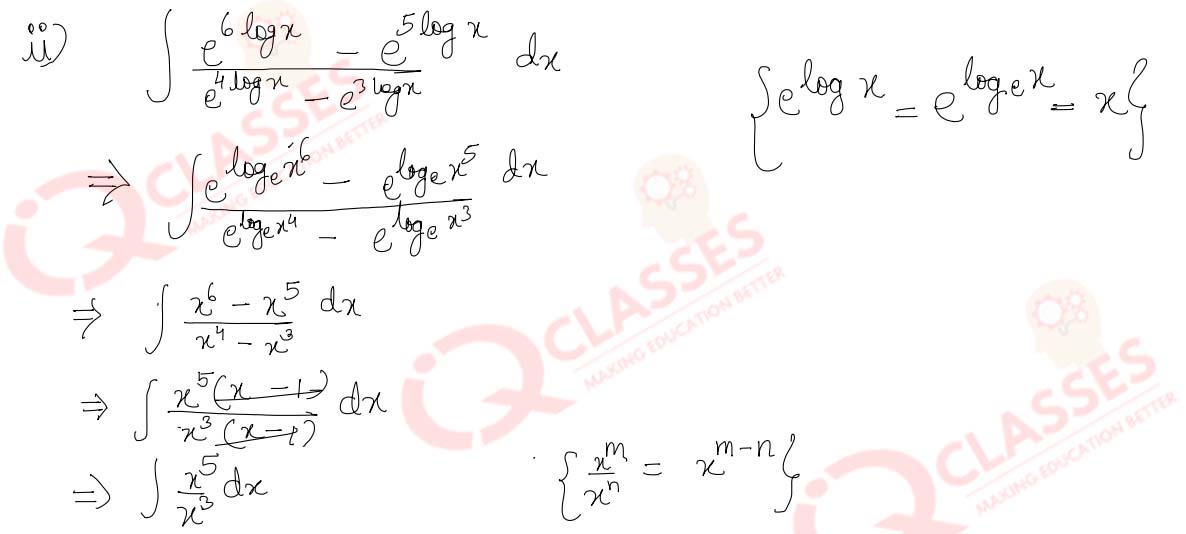 ii) ∫ (e^{6 log x} − e^{5 log x}) / (e^{4 log x} − e^{3 log x}) dx
{e^{log x} = e^{log_e x} = x}
⇒ ∫ (e^{log_e x^6} − e^{log_e x^5}) / (e^{log_e x^4} − e^{log_e x^3}) dx
⇒ ∫ (x^6 − x^5) / (x^4 − x^3) dx
⇒ ∫ x^5(x − 1) / x^3(x − 1) dx
⇒ ∫ x^5 / x^3 dx
{x^m / x^n = x^{m−n}}
iQ CLASSES
MAKING EDUCATION BETTER
iQ CLASSES
MAKING EDUCATION BETTER
iQ CLASSES
MAKING EDUCATION BETTER